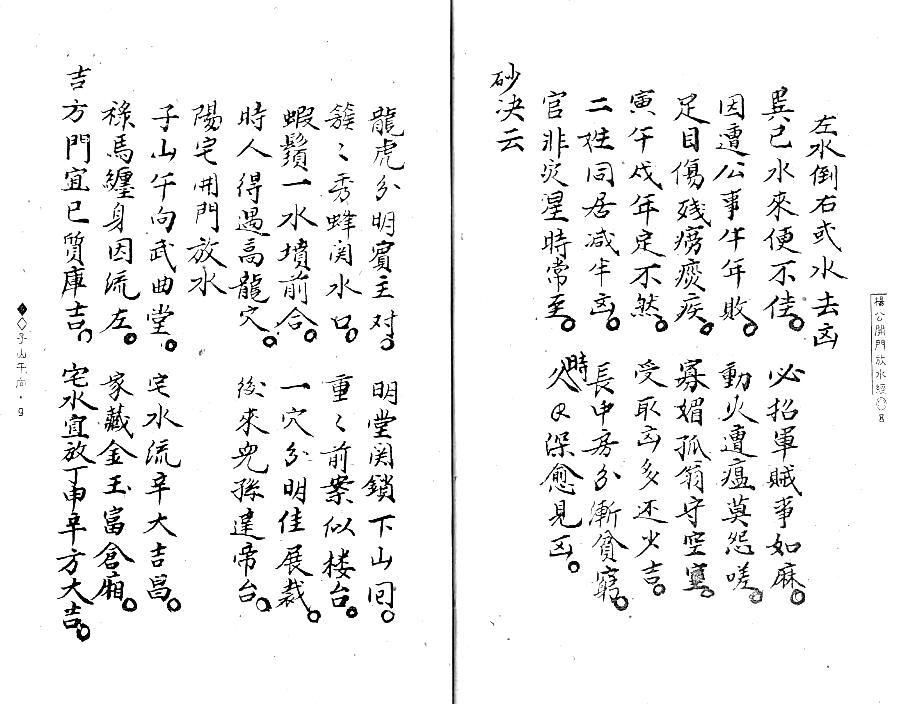 楊公開門放水經◇8
左水倒右或水去凶
巽巳水來便不佳。必招軍賊事如麻。
因遭公事年年敗。動火遭瘟莫怨嗟。
足目傷殘癆痰疾。寡媚孤翁守空窒。
寅午戌年定不然。受取凶多还少吉。
二姓同居减半凶。長中房分漸貧窮。
官非灾星時常至。久時日深愈見凶。
砂决云
龍虎分明賓主对。明堂関鎖下山囘。
簇〻秀蜂関水口。重〻前案似楼台。
蝦鬚一水墳前合。一穴分明佳展裁。
時人得遇高龍穴。後來兜孫建帝台。
陽宅開門放水
子山午向武曲堂。宅水流辛大吉昌。
祿馬纏身因流左。家藏金玉富倉廂。
吉方門宜巳質庫吉。宅水宜放丁申辛方大吉。
◆◇子山午向·9